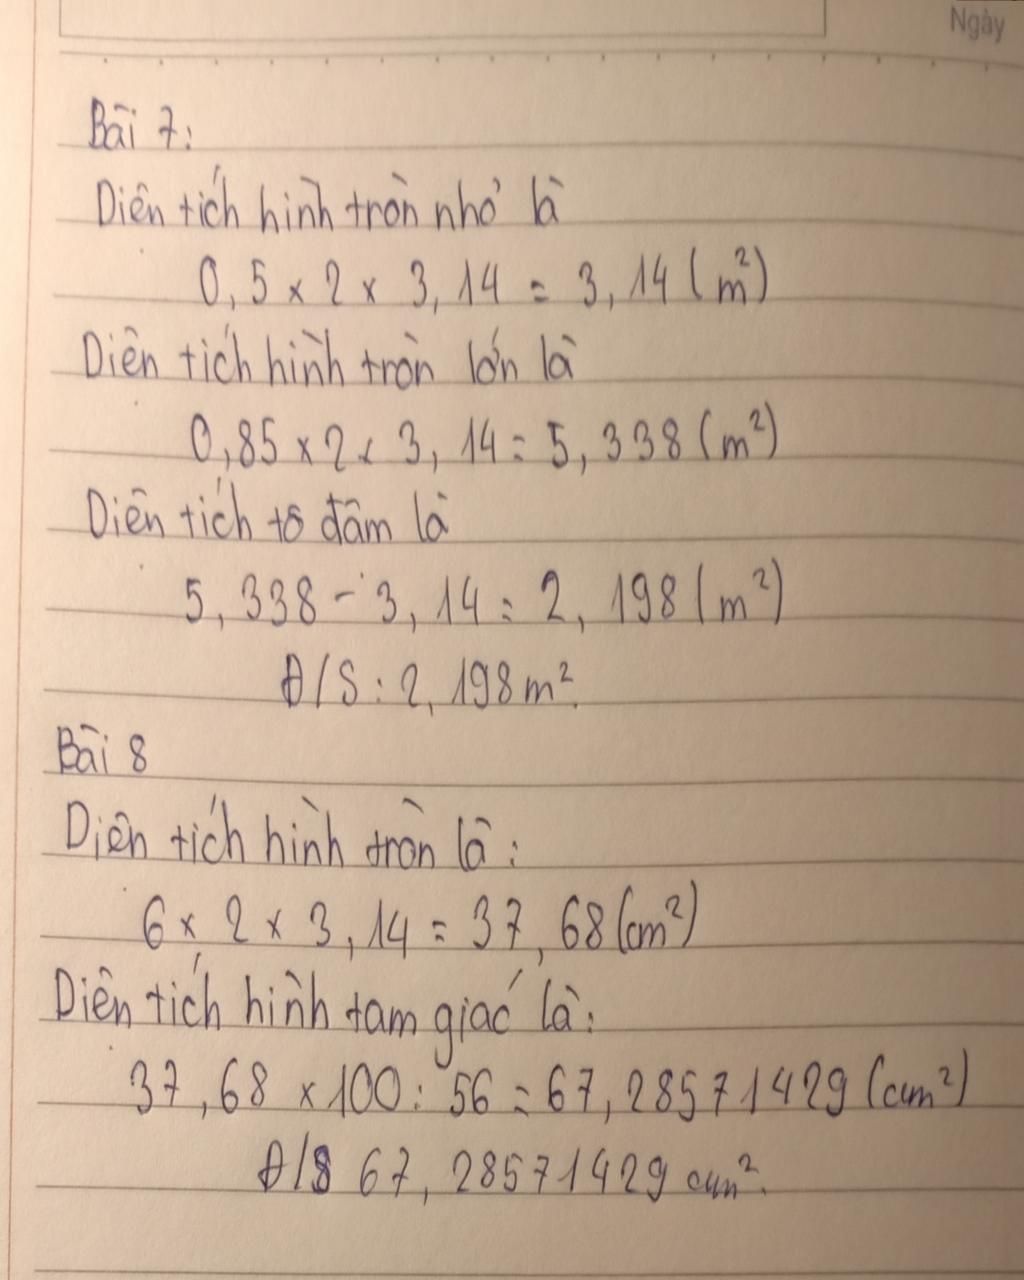 Ngày
Bài 7:
Diện tích hình tròn nhỏ là
0,5 x 2 x 3,14 = 3,14 (m²)
Diện tích hình tròn lớn là
0,85 x 2 x 3,14 = 5,338 (m²)
Diện tích tô đậm là
5,338 - 3,14 = 2,198 (m²)
Đ/S : 2,198 m².
Bài 8
Diện tích hình tròn là :
6 x 2 x 3,14 = 37,68 (cm²)
Diện tích hình tam giác là :
37,68 x 100 : 56 = 67,28571429 (cm²)
Đ/S 67,28571429 cm².